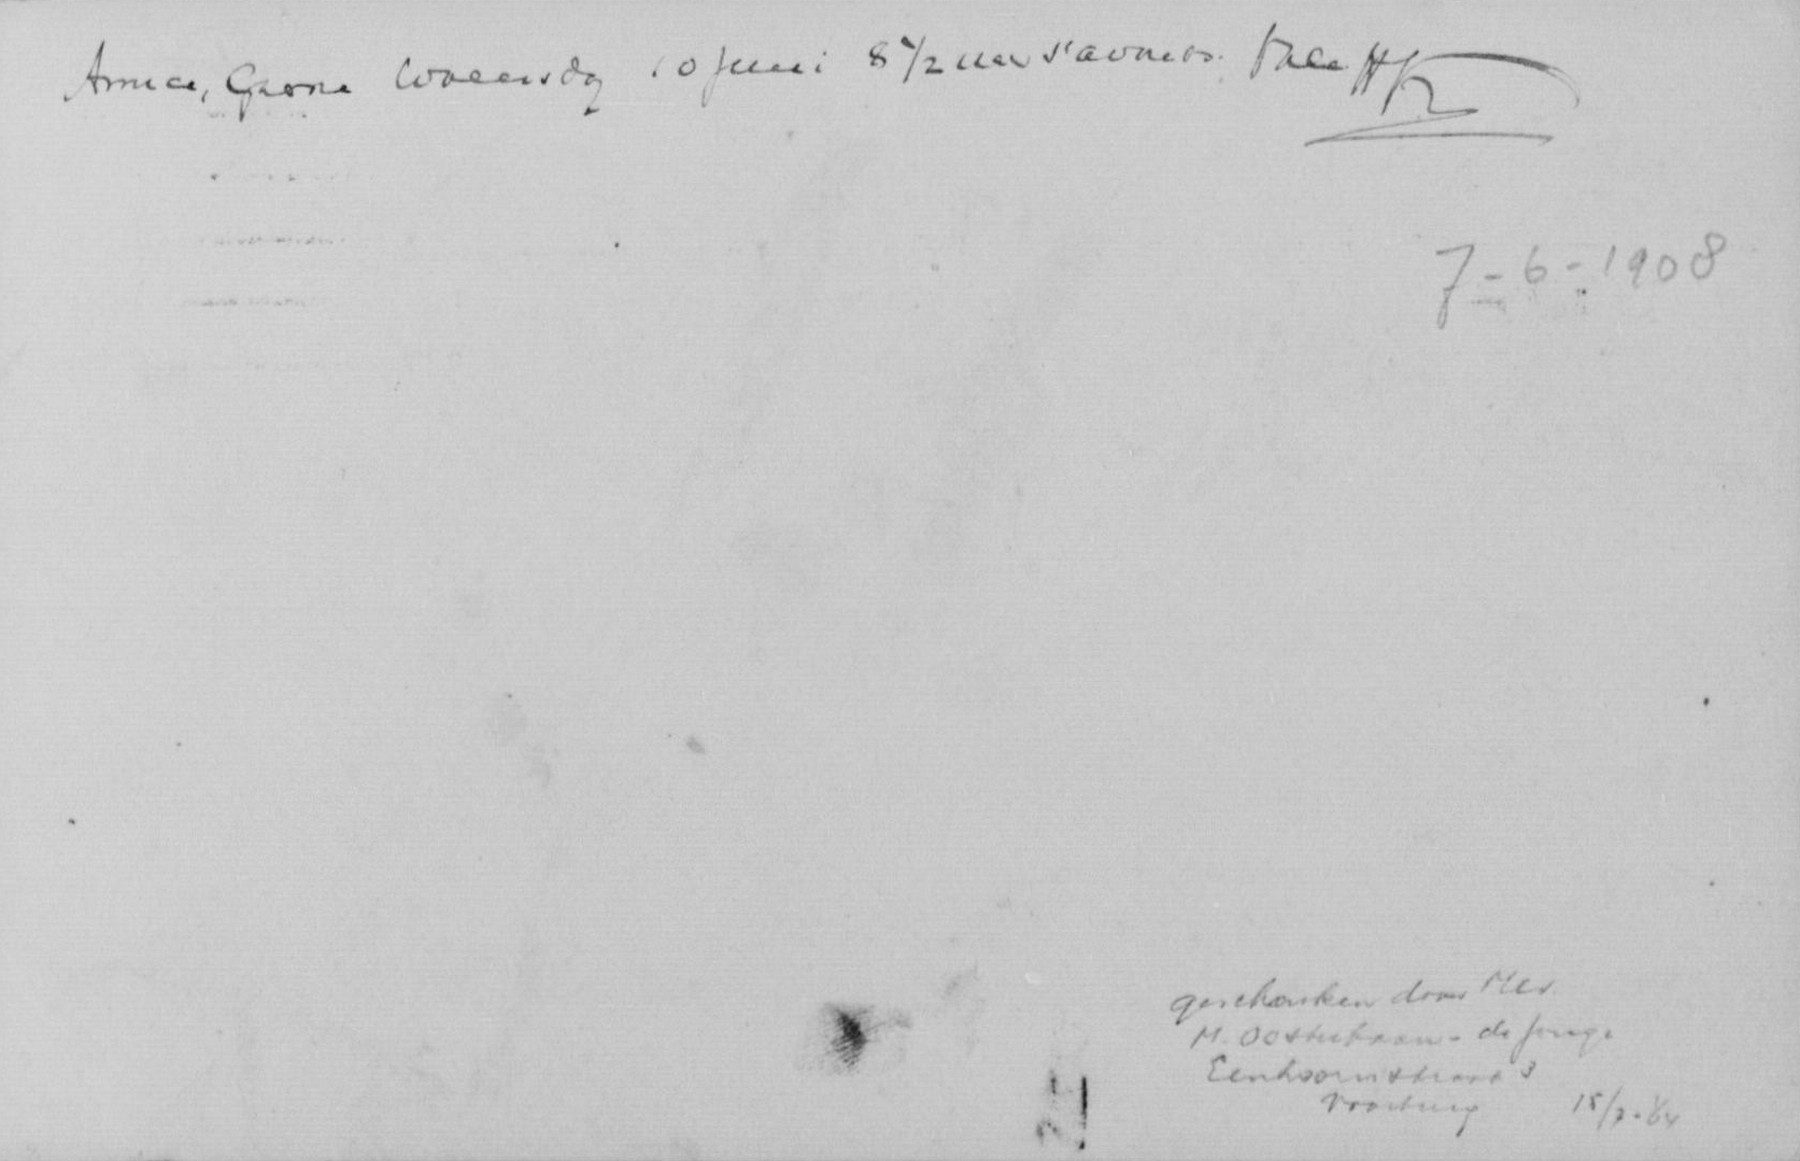 Amice, Gaarne Woensdag 10 Juni 8 1/2 uur s'avonds. Vale HK
7-6-1908
geschonken door Mev.
M. Oosterbaan - de Jonge
Eenhoornstraat 3
Voorburg 15/7-'64